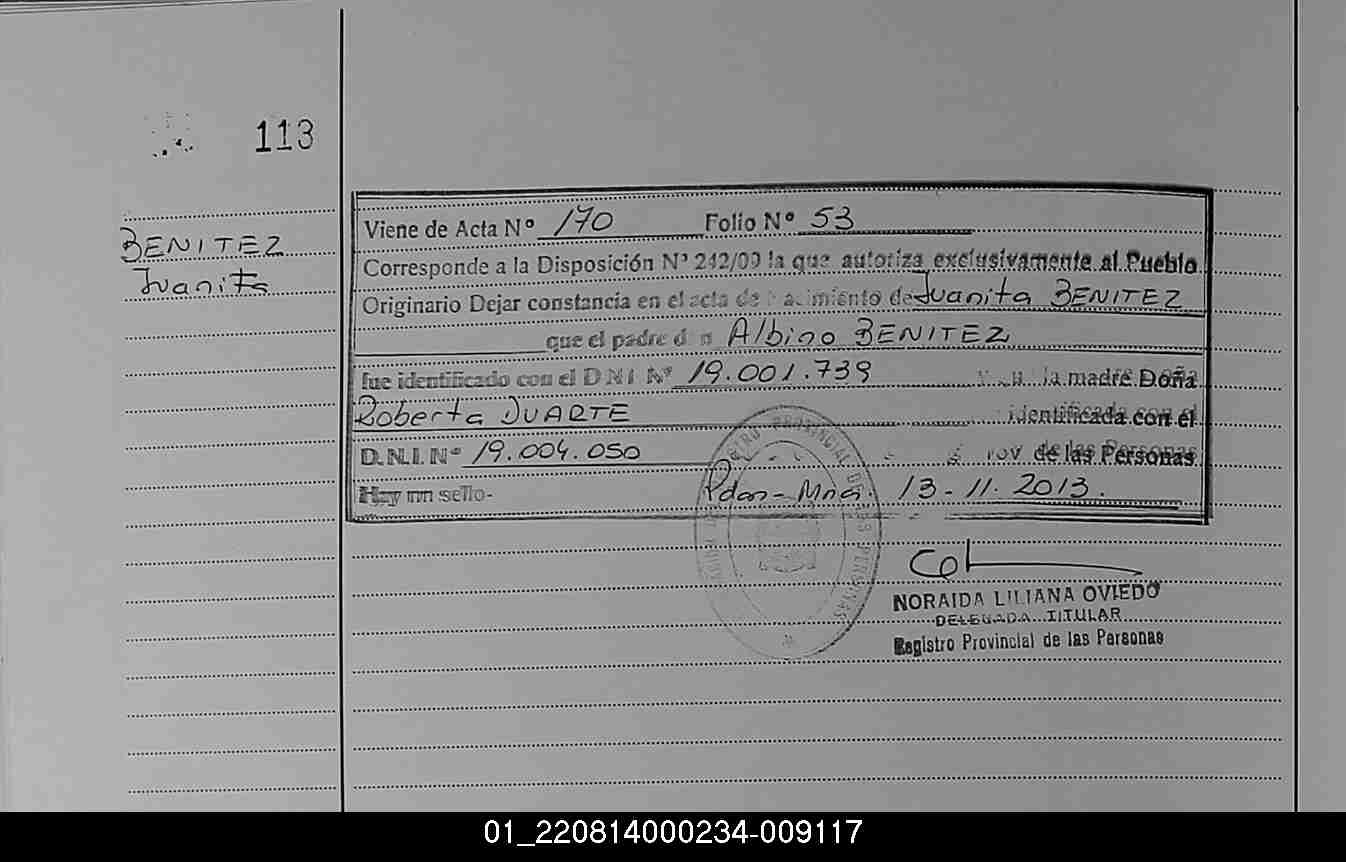 113
BENITEZ
Juanita
Viene de Acta Nº 170 Folio Nº 53
Corresponde a la Disposición Nº 242/09 la que autoriza exclusivamente al Pueblo
Originario Dejar constancia en el acta de nacimiento de Juanita BENITEZ
que el padre don Albino BENITEZ
fue identificado con el D.N.I. Nº 19.001.739 la madre Doña
Roberta DUARTE identificada con el
D.N.I. Nº 19.004.050 de las Personas
Hay un sello- 13-11-2013.
NORAIDA LILIANA OVIEDO
DELEGADA TITULAR
Registro Provincial de las Personas
01_220814000234-009117